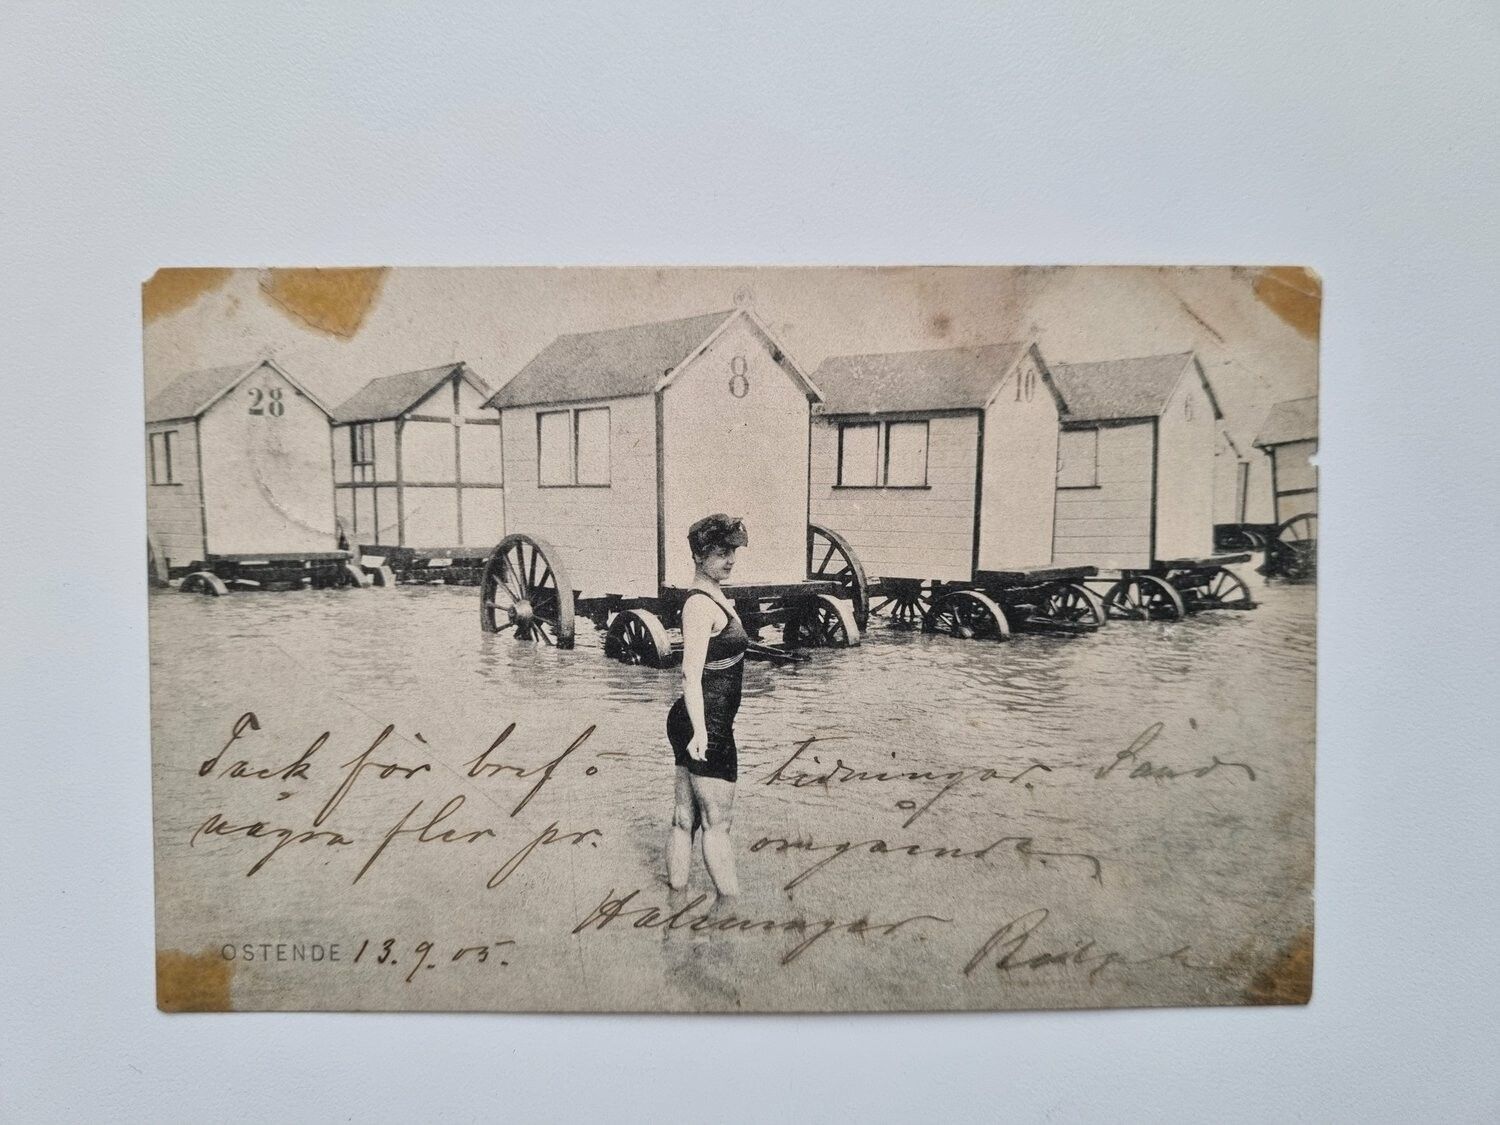 28
8
10
6
Tack för bref o tidningar. Sänd
några fler pr. omgående.
Hälsningar.
OSTENDE 13.9.05.